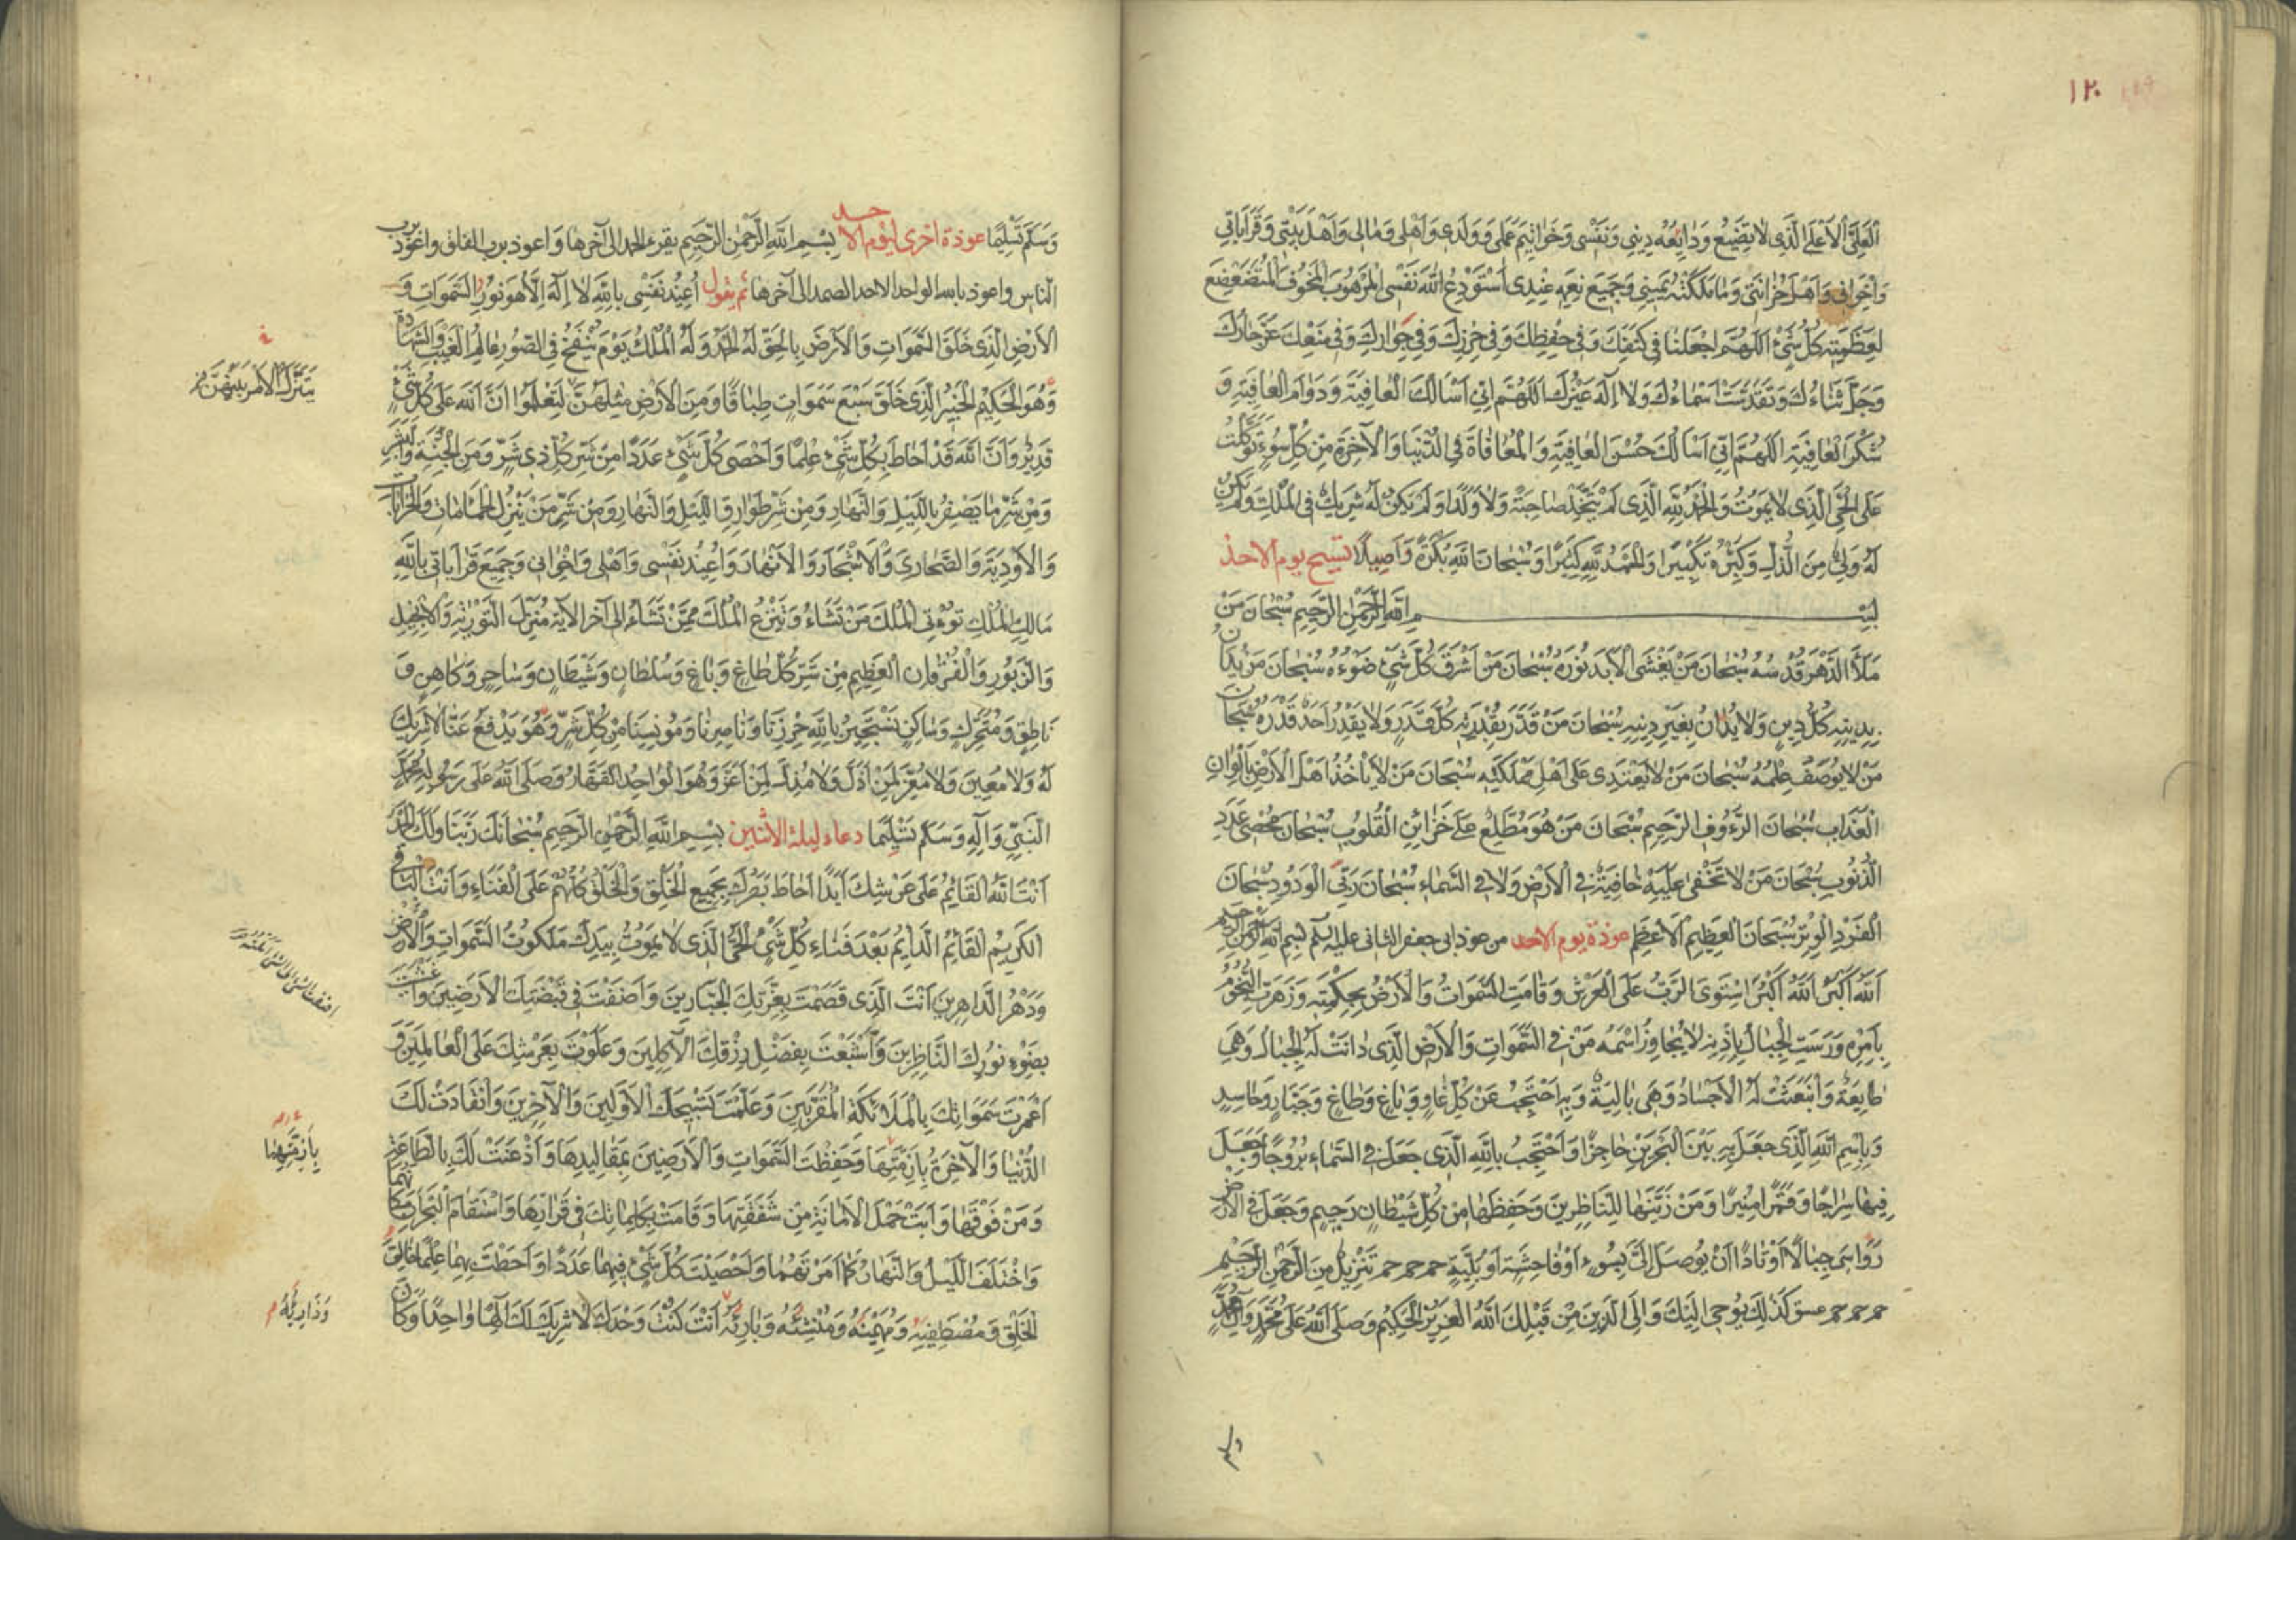 ١٢٠
الْعَلِيَّ الْأَعْلَى الَّذِي لَا يُضَيِّعُ وَدَايِعَهُ دِينِي وَنَفْسِي وَخَوَاتِيمَ عَمَلِي وَوَلَدِي وَأَهْلِي وَمَالِي وَأَهْلَ بَيْتِي وَقَرَابَاتِي
وَإِخْوَانِي وَأَهْلَ حُزَانَتِي وَمَا مَلَكَتْهُ يَمِينِي وَجَمِيعَ نِعَمِهِ عِنْدِي أَسْتَوْدِعُ اللَّهَ نَفْسِيَ الْمَرْهُوبَ الْمَخُوفَ الْمُتَضَعْضِعَ
لِعَظَمَتِهِ كُلُّ شَيْءٍ اَللّٰهُمَّ اجْعَلْنَا فِي كَنَفِكَ وَفِي حِفْظِكَ وَفِي حِرْزِكَ وَفِي جِوَارِكَ وَفِي مَنْعِكَ عَزَّ جَارُكَ
وَجَلَّ ثَنَاءُكَ وَتَقَدَّسَتْ اَسْمَاءُكَ وَلَا إِلَهَ غَيْرُكَ اَللّٰهُمَّ اِنِّي اَسْأَلُكَ الْعَافِيَةَ وَدَوَامَ الْعَافِيَةِ وَ
شُكْرَ الْعَافِيَةِ اَللّٰهُمَّ اِنِّي اَسْأَلُكَ حُسْنَ الْعَافِيَةِ وَالْمُعَافَاةَ فِي الدُّنْيَا وَالْآخِرَةِ مِنْ كُلِّ سُوءٍ تَوَكَّلْتُ
عَلَى الْحَيِّ الَّذِي لَا يَمُوتُ وَالْحَمْدُ لِلَّهِ الَّذِي لَمْ يَتَّخِذْ صَاحِبَةً وَلَا وَلَدًا وَلَمْ يَكُنْ لَهُ شَرِيكٌ فِي الْمُلْكِ وَلَمْ يَكُنْ
لَهُ وَلِيٌّ مِنَ الذُّلِّ وَكَبِّرْهُ تَكْبِيرًا وَالْحَمْدُ لِلَّهِ كَثِيرًا وَسُبْحَانَ اللَّهِ بُكْرَةً وَأَصِيلًا تسبيح يوم الاحد
بِسْمِ اللهِ الرَّحْمٰنِ الرَّحِيمِ سُبْحَانَ مَنْ
مَلَأَ الدَّهْرَ قُدْسُهُ سُبْحَانَ مَنْ يَغْشَى الْأَبَدَ نُورُهُ سُبْحَانَ مَنْ اَشْرَقَ كُلَّ شَيْءٍ ضَوْءُهُ سُبْحَانَ مَنْ يُدَانُ
بِدِينِهِ كُلُّ دِينٍ وَلَا يُدَانُ بِغَيْرِ دِينِهِ سُبْحَانَ مَنْ قَدَّرَ بِقُدْرَتِهِ كُلَّ قَدَرٍ وَلَا يَقْدِرُ اَحَدٌ قَدْرَهُ سُبْحَانَ
مَنْ لَا يُوصَفُ عِلْمُهُ سُبْحَانَ مَنْ لَا يَعْتَدِي عَلَى اَهْلِ مَمْلَكَتِهِ سُبْحَانَ مَنْ لَا يَأْخُذُ اَهْلَ الْاَرْضِ بِاَلْوَانِ
الْعَذَابِ سُبْحَانَ الرَّءُوفِ الرَّحِيمِ سُبْحَانَ مَنْ هُوَ مُطَّلِعٌ عَلَى خَزَائِنِ الْقُلُوبِ سُبْحَانَ مُحْصِي عَدَدِ
الذُّنُوبِ سُبْحَانَ مَنْ لَا تَخْفَى عَلَيْهِ خَافِيَةٌ فِي الْاَرْضِ وَلَا فِي السَّمَاءِ سُبْحَانَ رَبِّيَ الْوَدُودِ سُبْحَانَ
الْفَرْدِ الْوِتْرِ سُبْحَانَ الْعَظِيمِ الْاَعْظَمِ عوذة يوم الاحد من عوذ ابى جعفر الثانى عليه السلم بسم الله الرحمن الرحيم
اَللَّهُ اَكْبَرُ اَللَّهُ اَكْبَرُ اسْتَوَى الرَّبُّ عَلَى الْعَرْشِ وَقَامَتِ السَّمَوَاتُ وَالْاَرْضُ بِحِكْمَتِهِ وَزَهَرَتِ النُّجُومُ
بِاَمْرِهِ وَرَسَتِ الْجِبَالُ بِاِذْنِهِ لَا يُجَاوِزُ اسْمَهُ مَنْ فِي السَّمَوَاتِ وَالْاَرْضِ الَّذِي دَانَتْ لَهُ الْجِبَالُ وَهِيَ
طَائِعَةٌ وَانْبَعَثَتْ لَهُ الْاَجْسَادُ وَهِيَ بَالِيَةٌ وَبِهِ اَحْتَجِبُ عَنْ كُلِّ غَاوٍ وَبَاغٍ وَطَاغٍ وَجَبَّارٍ وَحَاسِدٍ
وَبِاسْمِ اللَّهِ الَّذِي جَعَلَ بِهِ بَيْنَ الْبَحْرَيْنِ حَاجِزًا وَاَحْتَجِبُ بِاللَّهِ الَّذِي جَعَلَ فِي السَّمَاءِ بُرُوجًا وَجَعَلَ
فِيهَا سِرَاجًا وَقَمَرًا مُنِيرًا وَمَنْ زَيَّنَهَا لِلنَّاظِرِينَ وَحَفِظَهَا مِنْ كُلِّ شَيْطَانٍ رَجِيمٍ وَجَعَلَ فِي الْاَرْضِ
رَوَاسِيَ جِبَالًا اَوْتَادًا اَنْ يُوصَلَ اِلَيَّ بِسُوءٍ اَوْ فَاحِشَةٍ اَوْ بَلِيَّةٍ حم حم حم تَنْزِيلٌ مِنَ الرَّحْمٰنِ الرَّحِيمِ
حم حم حم عسق كَذٰلِكَ يُوحِي اِلَيْكَ وَاِلَى الَّذِينَ مِنْ قَبْلِكَ اللَّهُ الْعَزِيزُ الْحَكِيمُ وَصَلَّى اللَّهُ عَلَى مُحَمَّدٍ وَآلِ مُحَمَّدٍ
وسلم
وَسَلَّمَ تَسْلِيمًا عوذة اخرى ليوم الاحد بِسْمِ اللهِ الرَّحْمٰنِ الرَّحِيمِ يقرء الحمد الى آخرها وَاعوذ برب الفلق واعوذ برب
الناس واعوذ بالله الواحد الاحد الصمد الى آخرها ثم يقول اُعِيذُ نَفْسِي بِاللَّهِ لَا اِلٰهَ اِلَّا هُوَ نُورُ السَّمَوَاتِ وَ
الْاَرْضِ الَّذِي خَلَقَ السَّمَوَاتِ وَالْاَرْضَ بِالْحَقِّ لَهُ الْحَمْدُ وَلَهُ الْمُلْكُ يَوْمَ يُنْفَخُ فِي الصُّورِ عَالِمُ الْغَيْبِ وَالشَّهَادَةِ
وَهُوَ الْحَكِيمُ الْخَبِيرُ الَّذِي خَلَقَ سَبْعَ سَمَوَاتٍ طِبَاقًا وَمِنَ الْاَرْضِ مِثْلَهُنَّ لِتَعْلَمُوا اَنَّ اللَّهَ عَلَى كُلِّ شَيْءٍ
يَتَنَزَّلُ الْاَمْرُ بَيْنَهُنَّ
قَدِيرٌ وَاَنَّ اللَّهَ قَدْ اَحَاطَ بِكُلِّ شَيْءٍ عِلْمًا وَاَحْصَى كُلَّ شَيْءٍ عَدَدًا مِنْ شَرِّ كُلِّ ذِي شَرٍّ وَمِنَ الْجِنَّةِ وَالْبَشَرِ
وَمِنْ شَرِّ مَا يَصْفِرُ بِاللَّيْلِ وَالنَّهَارِ وَمِنْ شَرِّ طَوَارِقِ اللَّيْلِ وَالنَّهَارِ وَمِنْ شَرِّ مَنْ يَنْزِلُ الْحَمَّامَاتِ وَالْخَرَابَاتِ
وَالْاَوْدِيَةَ وَالصَّحَارِيَ وَالْاَشْجَارَ وَالْاَنْهَارَ وَاُعِيذُ نَفْسِي وَاَهْلِي وَاِخْوَانِي وَجَمِيعَ قَرَابَاتِي بِاللَّهِ
مَالِكِ الْمُلْكِ تُؤْتِي الْمُلْكَ مَنْ تَشَاءُ وَتَنْزِعُ الْمُلْكَ مِمَّنْ تَشَاءُ الى آخر الآية مُنْزِلَ التَّوْرٰيةِ وَالْاِنْجِيلِ
وَالزَّبُورِ وَالْفُرْقَانِ الْعَظِيمِ مِنْ شَرِّ كُلِّ طَاغٍ وَبَاغٍ وَسُلْطَانٍ وَشَيْطَانٍ وَسَاحِرٍ وَكَاهِنٍ وَ
نَاطِقٍ وَمُتَحَرِّكٍ وَسَاكِنٍ نَسْتَجِيرُ بِاللَّهِ حِرْزِنَا وَنَاصِرِنَا وَمُونِسِنَا مِنْ كُلِّ شَرٍّ وَهُوَ يَدْفَعُ عَنَّا لَا شَرِيكَ
لَهُ وَلَا مُعِينَ وَلَا مُعِزَّ لِمَنْ اَذَلَّ وَلَا مُذِلَّ لِمَنْ اَعَزَّ وَهُوَ الْوَاحِدُ الْقَهَّارُ وَصَلَّى اللَّهُ عَلَى رَسُولِهِ مُحَمَّدٍ
النَّبِيِّ وَآلِهِ وَسَلَّمَ تَسْلِيمًا دعاء ليلة الاثنين بِسْمِ اللهِ الرَّحْمٰنِ الرَّحِيمِ سُبْحَانَكَ رَبَّنَا وَلَكَ الْحَمْدُ
اَنْتَ اللَّهُ الْقَائِمُ عَلَى عَرْشِكَ اَبَدًا اَحَاطَ بَصَرُكَ بِجَمِيعِ الْخَلْقِ وَالْخَلْقُ كُلُّهُمْ عَلَى الْفَنَاءِ وَاَنْتَ الْبَاقِي
الْكَرِيمُ الْقَائِمُ الدَّائِمُ بَعْدَ فَنَاءِ كُلِّ شَيْءٍ الْحَيُّ الَّذِي لَا يَمُوتُ بِيَدِكَ مَلَكُوتُ السَّمَوَاتِ وَالْاَرْضِ
وَدَهْرُ الدَّاهِرِينَ اَنْتَ الَّذِي قَصَمْتَ بِعِزَّتِكَ الْجَبَّارِينَ وَاَضَفْتَ فِي قَبْضَتِكَ الْاَرَضِينَ وَاَغْشَيْتَ
بِضَوْءِ نُورِكَ النَّاظِرِينَ وَاَشْبَعْتَ بِفَضْلِ رِزْقِكَ الْآكِلِينَ وَعَلَوْتَ بِعَرْشِكَ عَلَى الْعَالَمِينَ وَ
اَعْمَرْتَ سَمَوَاتِكَ بِالْمَلَائِكَةِ الْمُقَرَّبِينَ وَعَلَّمْتَ تَسْبِيحَكَ الْاَوَّلِينَ وَالْآخِرِينَ وَانْقَادَتْ لَكَ
الدُّنْيَا وَالْآخِرَةُ بِاَزِمَّتِهَا وَحَفِظْتَ السَّمَوَاتِ وَالْاَرَضِينَ بِمَقَالِيدِهَا وَاَذْعَنَتْ لَكَ بِالطَّاعَةِ
بِاَزِمَّتِهِمَا
وَمَنْ فَوْقَهَا وَاَبَتْ حَمْلَ الْاَمَانَةِ مِنْ شَفَقَتِهَا وَقَامَتْ بِكَلِمَاتِكَ فِي قَرَارِهَا وَاسْتَقَامَ الْبَحْرَانِ مَكَانَهُمَا
وَاخْتَلَفَ اللَّيْلُ وَالنَّهَارُ كَمَا اَمَرْتَهُمَا وَاَحْصَيْتَ كُلَّ شَيْءٍ فِيهِمَا عَدَدًا وَاَحَطْتَ بِهِمَا عِلْمًا خَالِقَ
الْخَلْقِ وَمُصْطَفِيهِ وَمُهَيْمِنُهُ وَمُنْشِئُهُ وَبَارِئُهُ اَنْتَ كُنْتَ وَحْدَكَ لَا شَرِيكَ لَكَ اِلٰهًا وَاحِدًا وَكَانَ
وَذَارِئُهُ